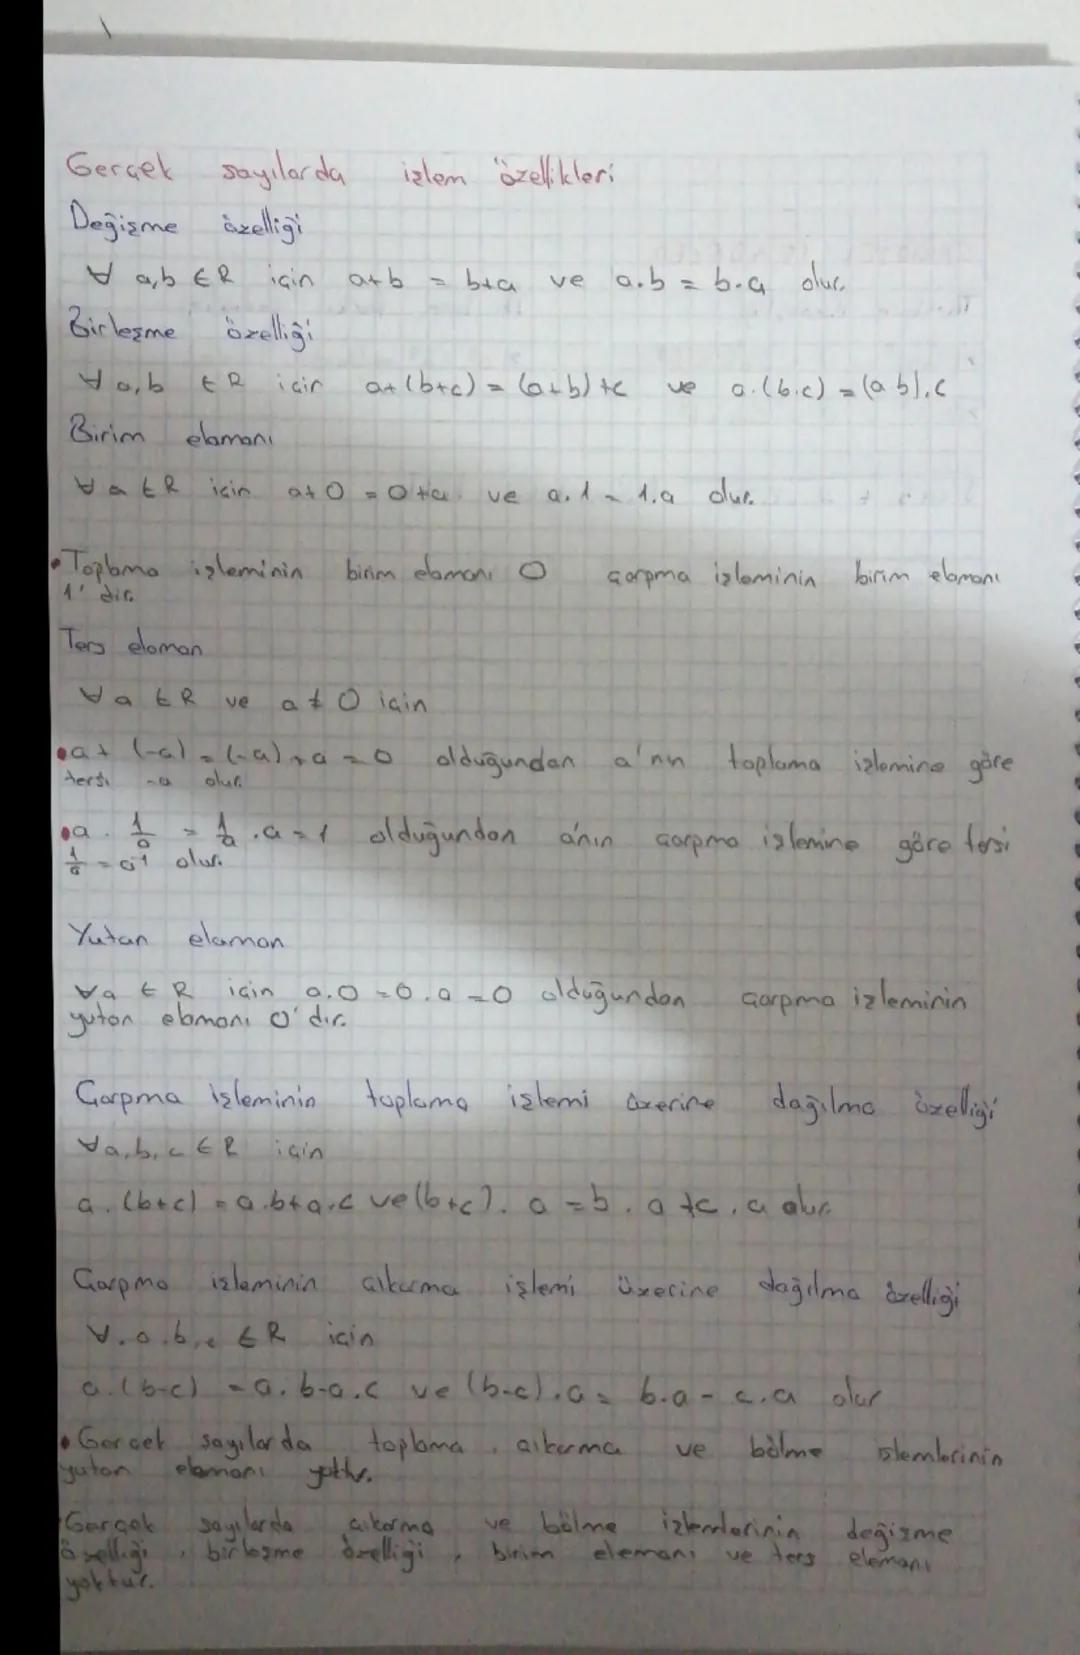 Gerçek sayılarda işlem özellikleri
Değişme özelliği
∀ a,b ∈ R için a+b = b+a ve a.b = b.a olur.
Birleşme özelliği
∀ a,b ∈ R için a+(b+c) = (a+b)+c ve a.(b.c) = (a b).c
Birim elamanı
∀ a ∈ R için a+0 = 0+a ve a.1 = 1.a olur.
• Toplama işleminin birim elamanı 0 çarpma işleminin birim elamanı
1' dir.
Ters elaman
∀ a ∈ R ve a ≠ 0 için
• a + (-a) = (-a) + a = 0 olduğundan a'nın toplama işlemine göre
tersi -a olur.
• a . 1/a = 1/a . a = 1 olduğundan a'nın çarpma işlemine göre tersi
1/a = a⁻¹ olur.
Yutan elaman
∀a ∈ R için a.0 = 0.a = 0 olduğundan çarpma işleminin
yutan elamanı 0' dır.
Çarpma işleminin toplama işlemi üzerine dağılma özelliği
∀a,b,c ∈ R için
a.(b+c) = a.b+a.c ve (b+c).a = b.a+c.a olur.
Çarpma işleminin çıkarma işlemi üzerine dağılma özelliği
∀.a.b,c ∈ R için
a.(b-c) = a.b-a.c ve (b-c).a = b.a - c.a olur
• Gerçek sayılarda toplama, çıkarma ve bölme işlemlerinin
yutan elamanı yoktur.
Gerçek sayılarda çıkarma ve bölme işlemlerinin değişme
özelliği, birleşme özelliği, birim elemanı ve ters elemanı
yoktur.